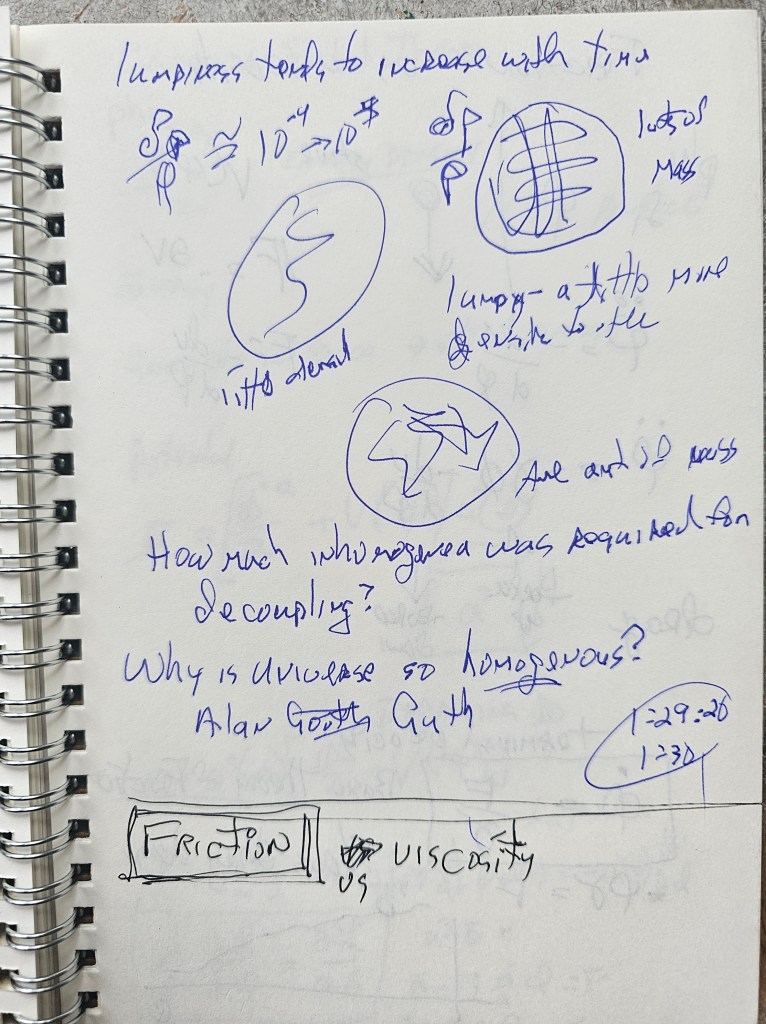 lumpiness tends to increase with time
δρ/ρ ≅ 10⁻⁴ → 10
δρ/ρ
lots of
mass
lumpy - a little more
little
How much inhomogenea was required for
decoupling?
Why is Universe so homogenous?
Alan Guth
1:29:20
1:30
FRICTION VS VISCOSITY